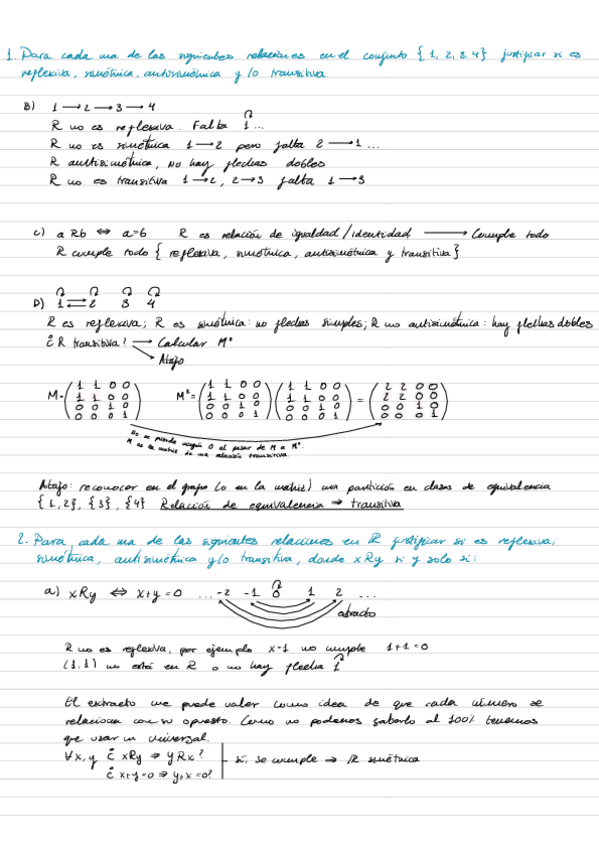 1. Para cada una de las siguientes relaciones en el conjunto {1, 2, 3, 4} justificar si es
reflexiva, simétrica, antisimétrica y/o transitiva.
B) 1 → 2 → 3 → 4
R no es reflexiva. Falta 1 ...
R no es simétrica 1 → 2 pero falta 2 → 1 ...
R antisimétrica, no hay flechas dobles
R no es transitiva 1 → 2, 2 → 3 falta 1 → 3
C) a R b ⇔ a = b R es relación de igualdad/identidad → Cumple todo
R cumple todo { reflexiva, simétrica, antisimétrica y transitiva}
D) 1 ⇄ 2 3 4
R es reflexiva; R es simétrica: no flechas simples; R no antisimétrica: hay flechas dobles
¿ R transitiva? → Calcular M²
→ Atajo
M = (1 1 0 0 / 1 1 0 0 / 0 0 1 0 / 0 0 0 1) M² = (1 1 0 0 / 1 1 0 0 / 0 0 1 0 / 0 0 0 1) (1 1 0 0 / 1 1 0 0 / 0 0 1 0 / 0 0 0 1) = (2 2 0 0 / 2 2 0 0 / 0 0 1 0 / 0 0 0 1)
No se pierde ningún 0 al pasar de M a M².
M es la matriz de una relación transitiva.
Atajo: reconocer en el grapo (o en la matriz) una partición en clases de equivalencia
{1,2}, {3}, {4} Relación de equivalencia ⇒ transitiva
2. Para cada una de las siguientes relaciones en R justificar si es reflexiva,
simétrica, antisimétrica y/o transitiva, donde xRy si y solo si:
a) xRy ⇔ x+y=0 ... -2 -1 0 1 2 ...
R no es reflexiva, por ejemplo x=1 no cumple 1+1=0
(1,1) no está en R o no hay flecha 1
El extracto me puede valer como idea de que cada número se
relaciona con su opuesto. Como no podemos saberlo al 100% tenemos
que usar un universal.
∀x,y ¿ xRy ⇒ yRx? si, se cumple ⇒ R simétrica
¿ x+y=0 ⇒ y+x=0?